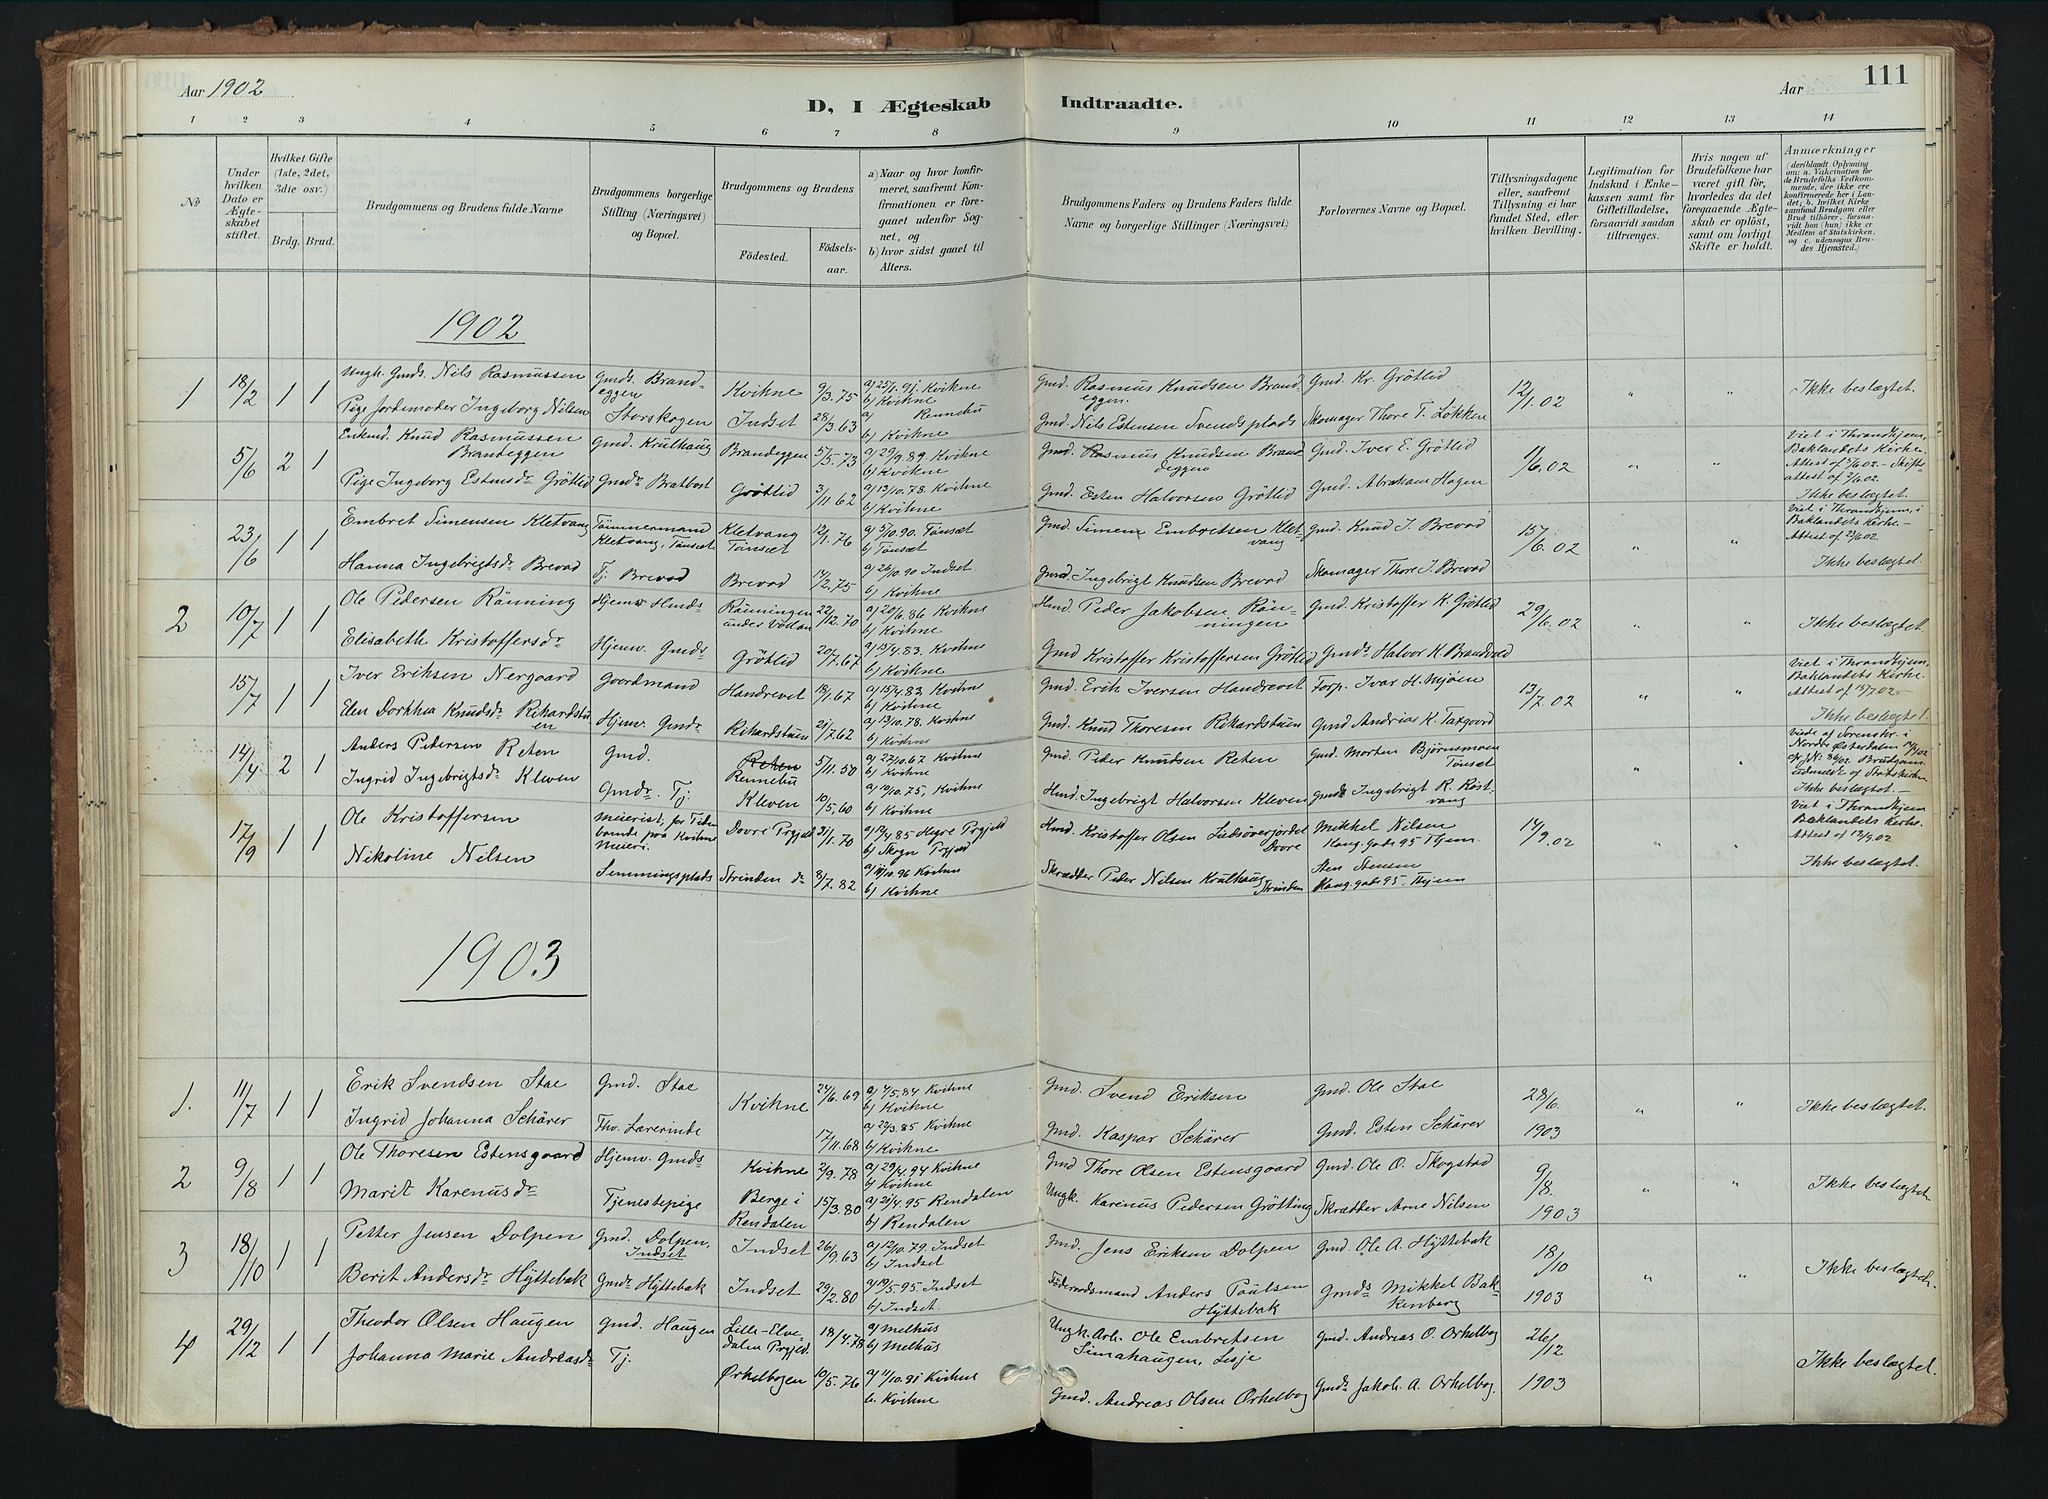 Aar 1902
D, I Ægteskab Indtraadte.
Aar
111
1 2 3 4 5 6 7 8 9 10 11 12 13 14
No
Under hvilken Dato er Ægteskabet stiftet.
Hvilket Gifte (1ste, 2det, 3die osv.)
Brdg. Brud.
Brudgommens og Brudens fulde Navne
Brudgommens borgerlige Stilling (Næringsvei) og Bopæl.
Brudgommens og Brudens
Födested.
Födsels-aar.
a) Naar og hvor konfirmeret, saafremt Konfirmationen er foregaaet udenfor Sognet, og
b) hvor sidst gaaet til Alters.
Brudgommens Faders og Brudens Faders fulde Navne og borgerlige Stillinger (Næringsvei)
Forlovernes Navne og Bopæl.
Tillysningsdagene eller, saafremt Tillysning ei har fundet Sted, efter hvilken Bevilling.
Legitimation for Indskud i Enkekassen samt for Giftetilladelse, forsaavidt saadan tiltrænges.
Hvis nogen af Brudefolkene har været gift för, hvorledes da det foregaaende Ægteskab er oplöst, samt om lovligt Skifte er holdt.
Anmærkninger (deriblandt Oplysning om: a. Vakcination for Brudefolks Vedkommende, der ikke ere konfirmerede her i Landet; b. hvilket Kirkesamfund Brudgom eller Brud tilhörer, forsaavidt han (hun) ikke er Medlem af Statskirken, og c. udensogns Brudes Hjemsted.)
1902
1 18/2 1 1 Ungk. Gmds. Nils Rasmussen Gmds. Brandeggen Kvikne 9/3.75 a) 25/1.91. Kvikne b) Kvikne Gmd. Rasmus Knudsen Brandeggen. Gmd. Kr. Grötlid 12/1.02 " " Ikke beslægtet.
Pige Jordemoder Ingeborg Nilsen Storskogen Indset 28/3.63 a) Rennebu b) Kvikne Gmd. Nils Estensen Svendsplads Skomager Thore T. Løkken
5/6 2 1 Enkmd. Knud Rasmussen Brandeggen Gmd. Krulhaug Brandeggen 5/5.73 a) 29/9.89. Kvikne b) Kvikne Gmd. Rasmus Knudsen Brandeggen Gmd. Iver E. Grötlid 1/6.02 " " Viet i Throndhjem, Baklandets Kirke. Attest af 5/6 02. – Skifteattest af 2/6 02. Ikke beslægtet.
Pige Ingeborg Estensdr Grötlid Gmdsdr Bratbost Grötlid 3/11 62 a) 13/10.78. Kvikne b) Kvikne Gmd. Esten Halvorsen Grötlid Gmd. Abraham Hagen
23/6 1 1 Embret Simensen Kletvang Tømmermand Kletvang, Tønsæt Kletvang Tønsæt 12/1.76 a) 5/10.90. Tønsæt b) Tønsæt Gmd. Simen Embretsen Kletvang Gmd. Knud I. Brevad 15/6.02 " " Viet i Thrandhjem, i Baklandets Kirke. – Attest af 23/6 02 Ikke beslægtet.
Hanna Ingebrigtsdr Brevad Tj. Brevad Brevad 14/2.75 a) 26/10.90 Indset b) Kvikne Gmd. Ingebrigt Knudsen Brevad Skomager Thore I. Brevad
2 10/7 1 1 Ole Pedersen Rönning Hjemv. Hmds Rönningen under Vollan 22/12.70 a) 20/6.86 Kvikne b) Kvikne Hmd. Peder Jakobsen Rönningen Gmd. Kristoffer K. Grötlid 29/6.02 " " Ikke beslægtet.
Elisabeth Kristoffersdr Hjemv. Gmdsdr Grötlid 20/7.67 a) 15/4.83. Kvikne b) Kvikne Gmd Kristoffer Kristoffersen Grötlid Gmds Halvor K. Brandvold
15/7 1 1 Iver Eriksen Nergaard Gaardmand Handrevet 18/1.67 a) 15/4.83. Kvikne b) Kvikne Gmd. Erik Iversen Handrevet Forp. Ivar H. Mjøen 13/7.02 " " Viet i Thrandhjem, Baklandets Kirke. Attest af 15/7 02. – Ikke beslægtet.
Elen Dorthea Knudsdr Rikardstuen Hjemv. Gmdsdr Rikardstuen 21/7.62 a) 13/10.78. Kvikne b) Kvikne Gmd. Knud Thoresen Rikardstuen Gmd Andrias K.
14/4 2 1 Anders Pedersen Reten Gmd. Reten Rennebu 5/11.50 a) 22/10.67 Kvikne b) Kvikne Gmd. Peder Knudsen Reten Gmd. Morten Bjørnsmoen Tönset " " Viede af Sorenskr. i Nordre Østerdalen 14/4 02 Brudgom udmeldt af Statskirken. Ikke beslægtet. –
Ingrid Ingebrigtsdr Kleven Gmdsdr. Tj. Kleven 10/5.60 a) 10/10.75, Kvikne b) Kvikne Hmd. Ingebrigt Halvorsen Kleven Gmds Ingebrigt R. Röstvang
17/9 1 1 Ole Kristoffersen Meierist, for Tiden boende paa Kvikne Meieri. Dovre Prgjeld 31/1.70 a) 12/4.85 Hegre Prgjeld b) Skogn Prgjeld Hmd. Kristoffer Olsen Dovre Mikkel Nilsen Kong. gade 95 Thjem. 14/9.02 " " Viet i Thrandhjem Baklandets Kirke. Attest af 17/9 02 Ikke beslægtet.
Nikoline Nilsen Semmingsplads Strinden dr 8/7.82 a) 11/10.96 Kvikne b) Kvikne Skrædder Peder Nilsen Krulhaug Strinden Sten Stensen Kong. gade 95. Thjem
1903
1. 11/7 1 1 Erik Svendsen Stae Gmd. Stae Kvikne 24/6.69 a) 4/5.84 Kvikne b) Kvikne Gmd. Svend Eriksen Gmd. Ole Stae 28/6. 1903 " " Ikke beslægtet.
Ingrid Johanna Schärer Fhv. Lærerinde 17/11.68 a) 22/3.85 Kvikne b) Kvikne Gmd. Kaspar Schärer Gmd. Esten Schärer
2 9/8 1 1 Ole Thoresen Estensgaard Hjemv. Gmds Kvikne 2/9.78 a) 29/4.94 Kvikne b) Kvikne Gmd Thore Olsen Estensgaard Gmd. Ole O. Skogstad 9/8. 1903 " " Ikke beslægtet.
Marit Karenusdr Tjenestepige Berge i Rendalen 15/3.80 a) 21/4.95 Rendalen b) Rendalen Ungk. Karenus Pedersen Grötting Skrædder Arne Nilsen
3 18/10 1 1 Petter Jensen Dolpen Gmd. Dolpen, Indset Indset 26/9.63 a) 12/10.79. Indset b) Indset Gmd. Jens Eriksen Dolpen Gmd. Ole A. Hÿttebak 18/10 1903 " " Ikke beslægtet.
Berit Andersdr Hÿttebak Gmdsdr Hÿttebak Indset 29/2.80 a) 19/5.95 Indset b) Indset. Föderaadsmand Anders Paulsen Hÿttebak Gmds Mikkel Bakkenberg
4 29/12 1 1 Theodor Olsen Haugen Gmd. Haugen Lille-Elvedalen Prgjeld. 18/4.78 a) Melhus b) Melhus Ungk. Arb. Ole Embretsen Simahaugen, Lesje Gmd. Andreas O. Orkelbog 26/12 1903 Ikke beslægtet.
Johanna Marie Andreasdr Tj. Orkelbogen 10/5.76 a) 11/10.91 Kvikne b. Kvikne Gmd. Andreas Olsen Orkelbog Gmds Jakob. A. Orkelbog.